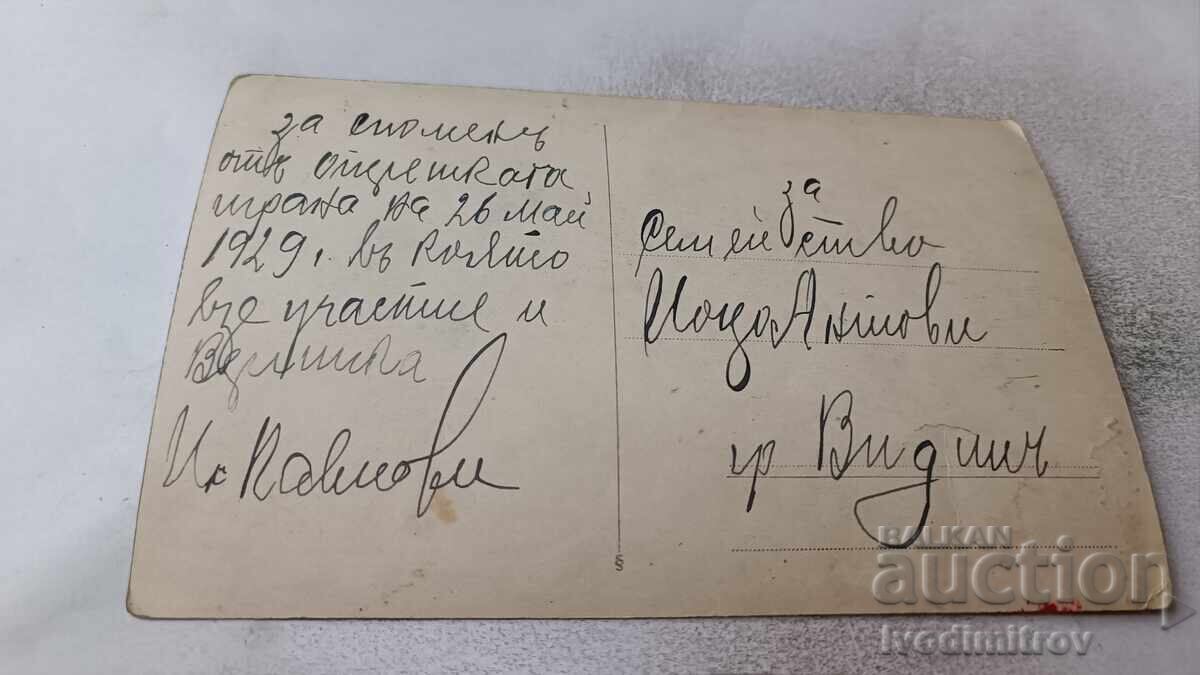 за споменъ
отъ оперетката
играна на 26 май
1929 г. въ която
взе участие и
И. Павлови
за
Семейство
Цоцо Антови
гр Видинъ
§
BALKAN
auction
Ivodimitrov